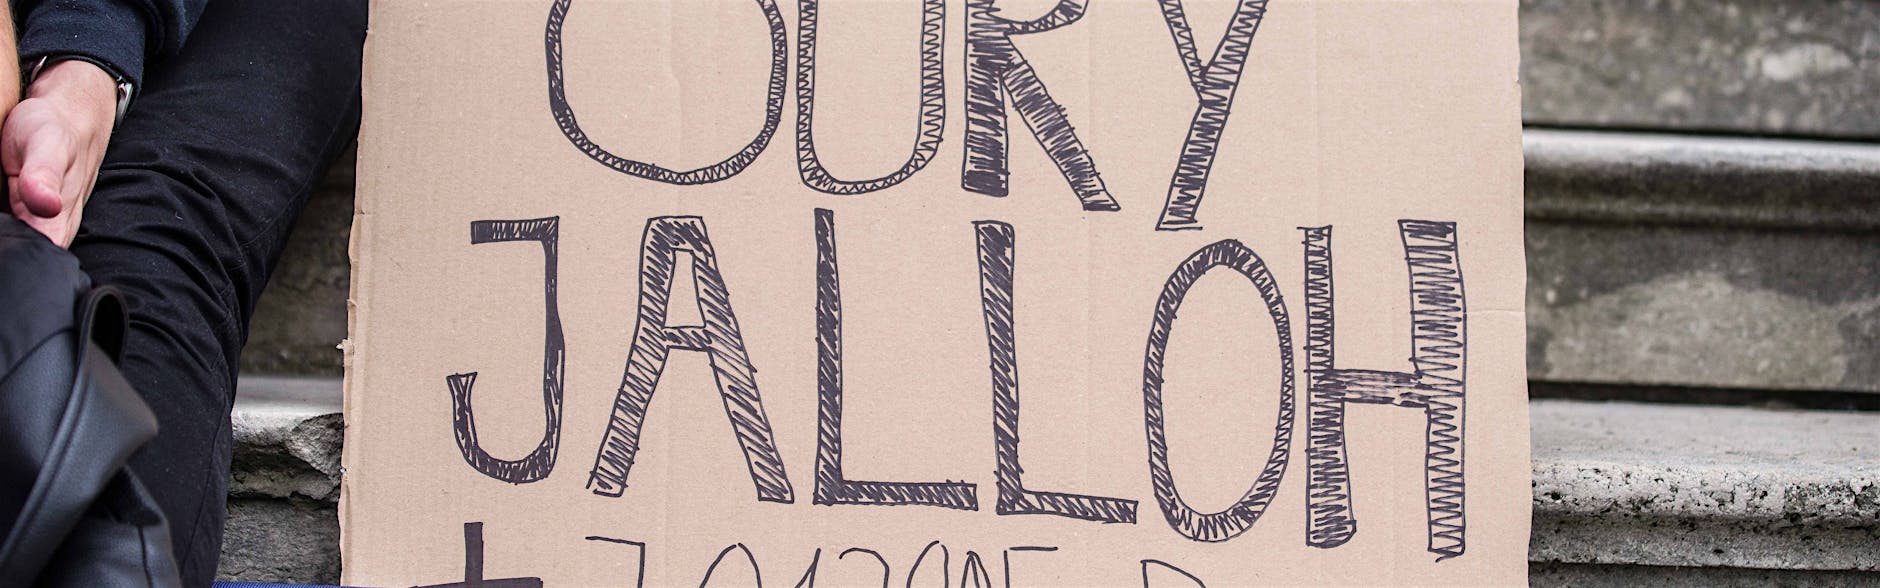 OURY
JALLOH